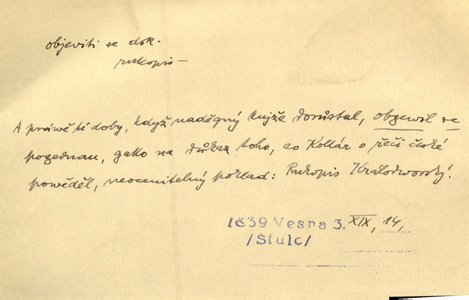 objeviti se dok.
rukopis —
A práwě té doby, když naděgný kníže dorůstal, obgewil se
pogednau, gako na důkaz toho, co Kollár o řeči české
powěděl, neocenitelný poklad: Rukopis Králodworský!
1839 Vesna 3. XIX, 14,
/Štulc/